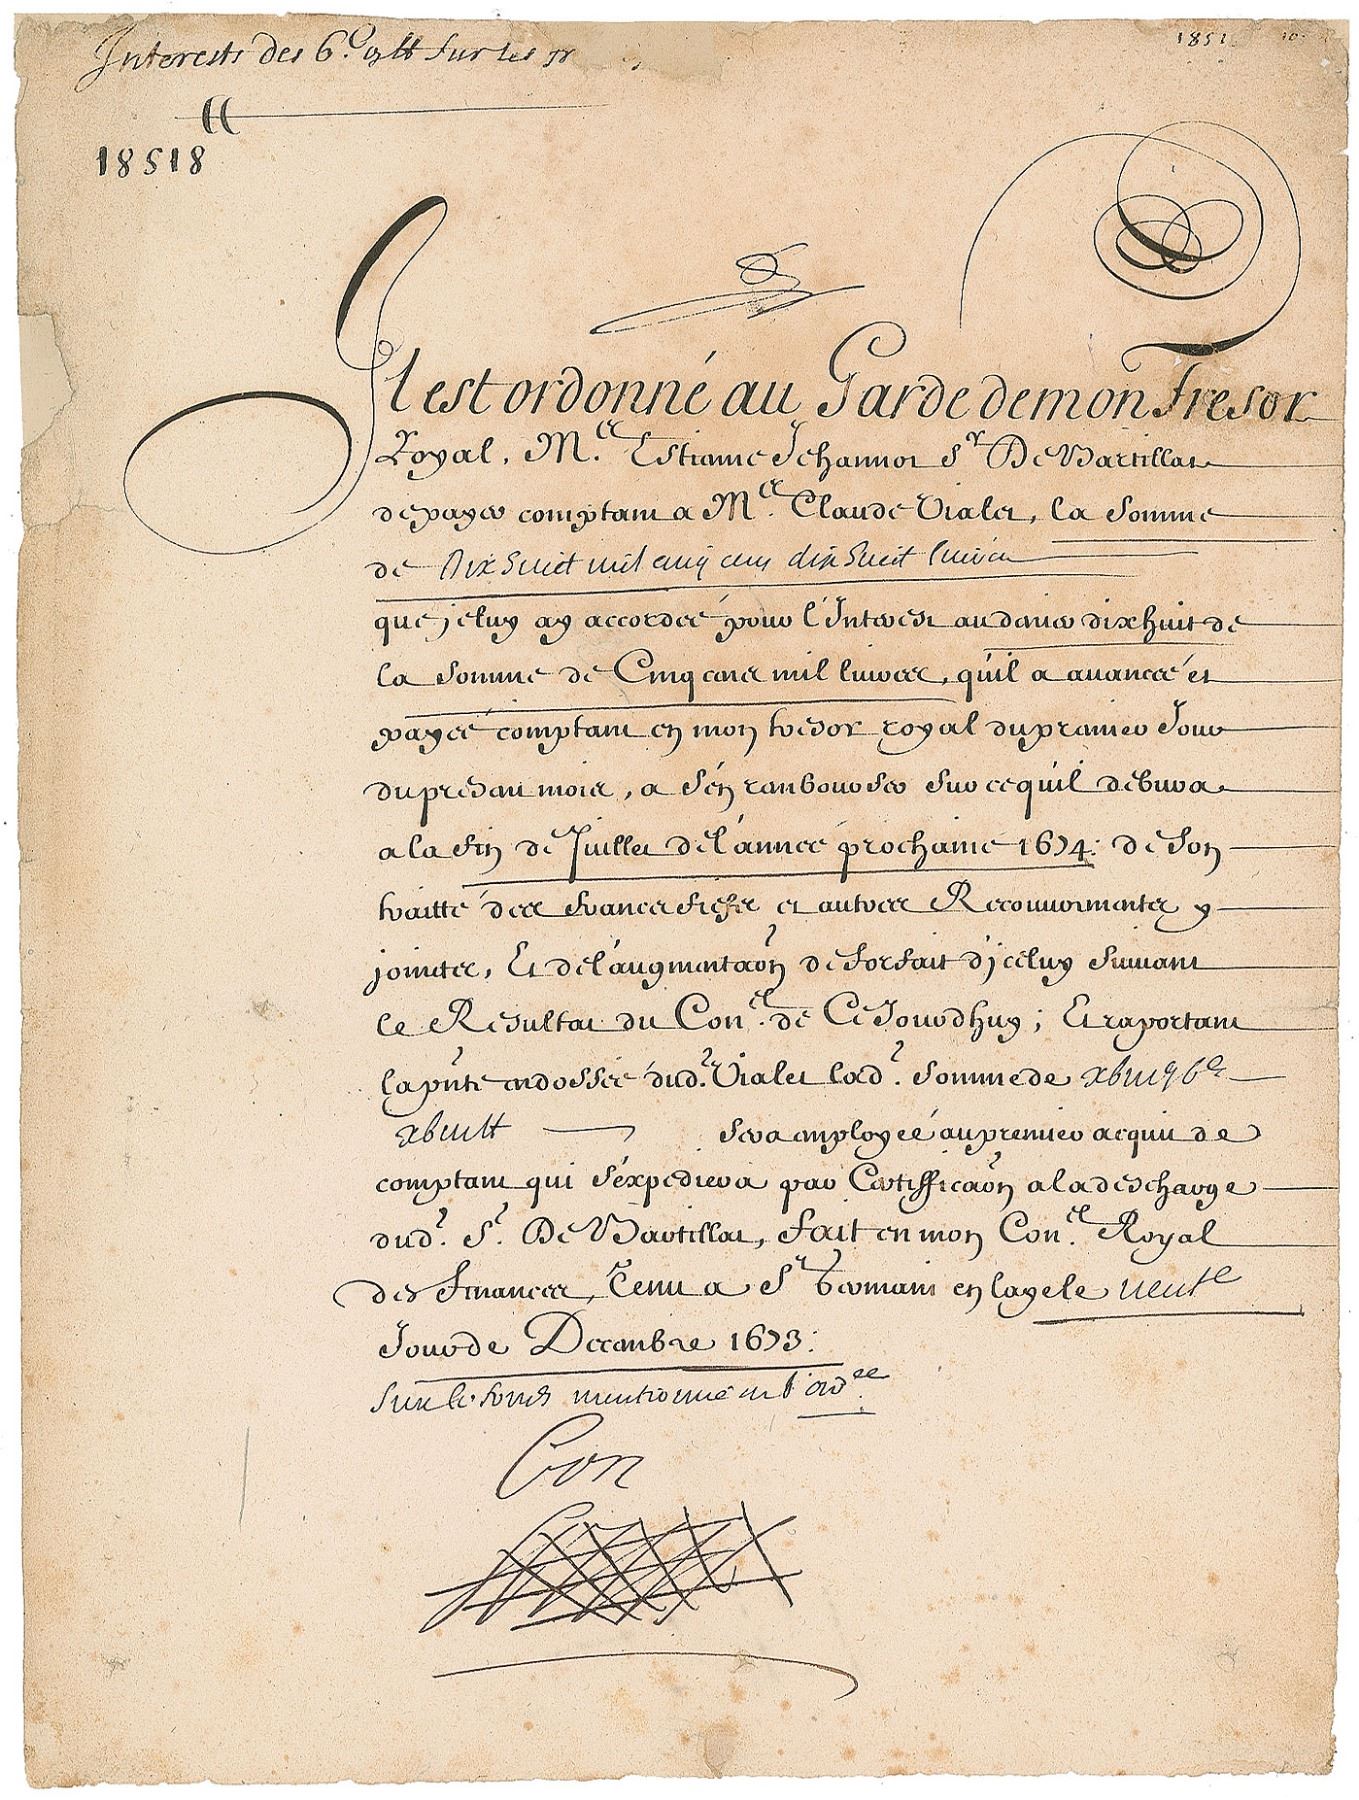 Interests des 6.c m lt sur les
1851
18518
Il est ordonné au Garde de mon Tresor
Royal, M.re Estienne Jehannot Sr De Bartillat
de payer comptant a M.re Claude Vialet, la Somme
de Dix huict mil cinq cens dix huict livres
que je luy ay accordée pour l'Interest au denier dix huit de
la Somme de Cinq cens mil livres, qu'il a avancée et
payée comptant en mon tresor royal du premier Jour
du present mois, a s'en rembourser sur ce qu'il debvra
a la fin de Juillet de l'année prochaine 1674: de son
traitté des francs fiefs et autres Recouvrements y
joincts, Et de l'augmentaon de forfait d'jceluy suivant
le Resultat du Con.el de Ce Jourdhuy; Et raportant
la pnte endossée dud.r Vialet lad. somme de xviijm vc
xviijlt sera employée au premier acquit de
comptant qui s'expediera par Certifficaon a la descharge
dud. Sr. De Bartillat, fait en mon Con.el Royal
des finances, Tenu a St Germain en laye le
Jour de Decembre 1673.
Sur le fonds mentionné en l'ord.ce
Bon